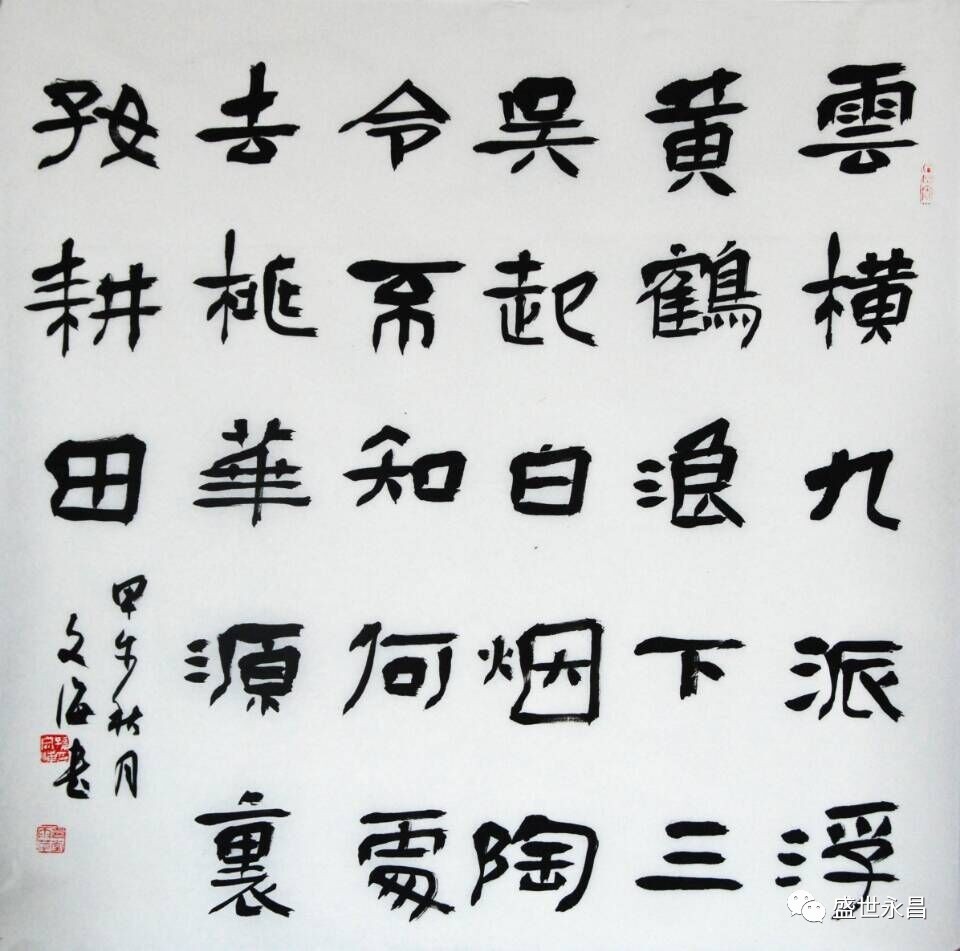 雲横九派浮
黄鶴浪下三
吴起白烟陶
令不知何處
去桃華源裏
好耕田
甲午秋月
文海书
盛世永昌